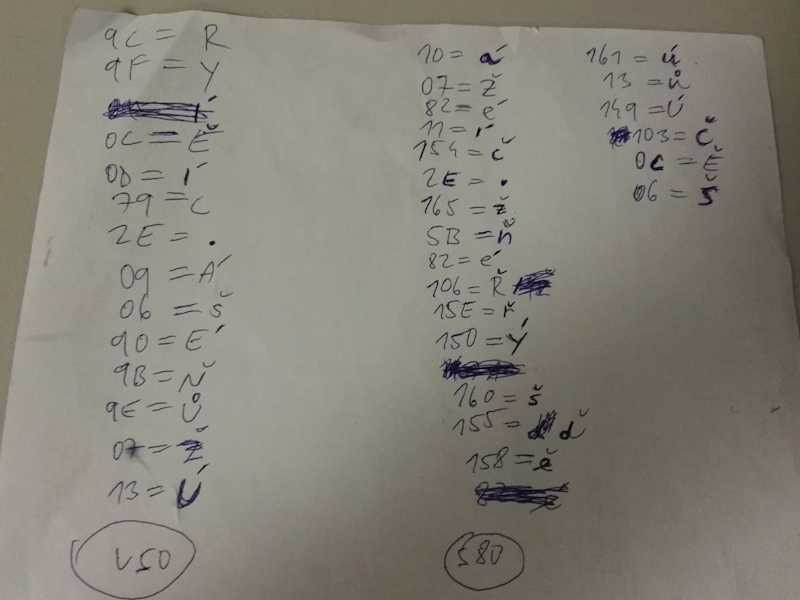 9C = R
9F = Y
0C = Ě
0D = Í
79 = C
2E = .
09 = Á
06 = Š
90 = É
9B = Ň
9E = Ů
07 = Ž
13 = Ú
V50
10 = á
07 = ž
82 = é
11 = í
154 = č
2E = .
165 = ž
5B = ň
82 = é
106 = Ř
15E = ř
150 = ý
160 = š
155 = ď
158 = ě
580
161 = ú
13 = ů
149 = Ú
103 = Č
0C = Ě
06 = Š